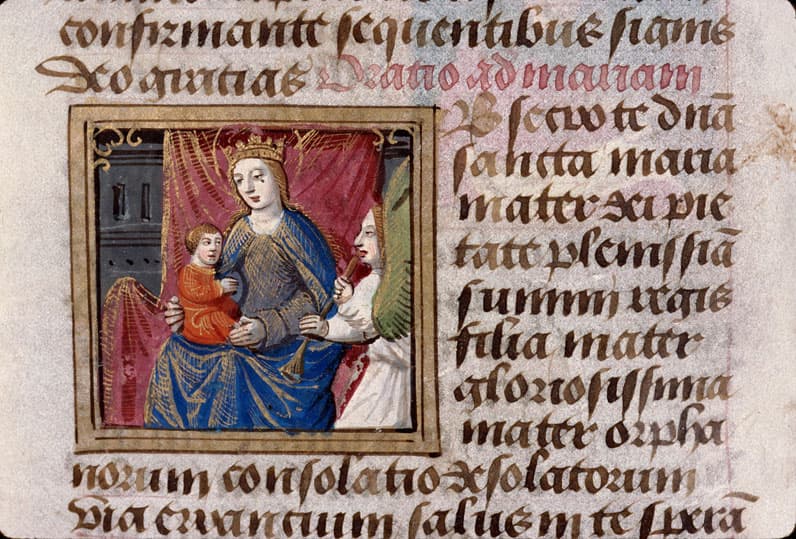 confirmante sequentibus signis
deo gratias Oratio ad mariam
Obsecro te dnā
sancta maria
mater dei pie
tate plenissiā
summi regis
filia mater
gloriosissima
mater orpha
norum consolatio desolatorum
via errancium salus in te sperā